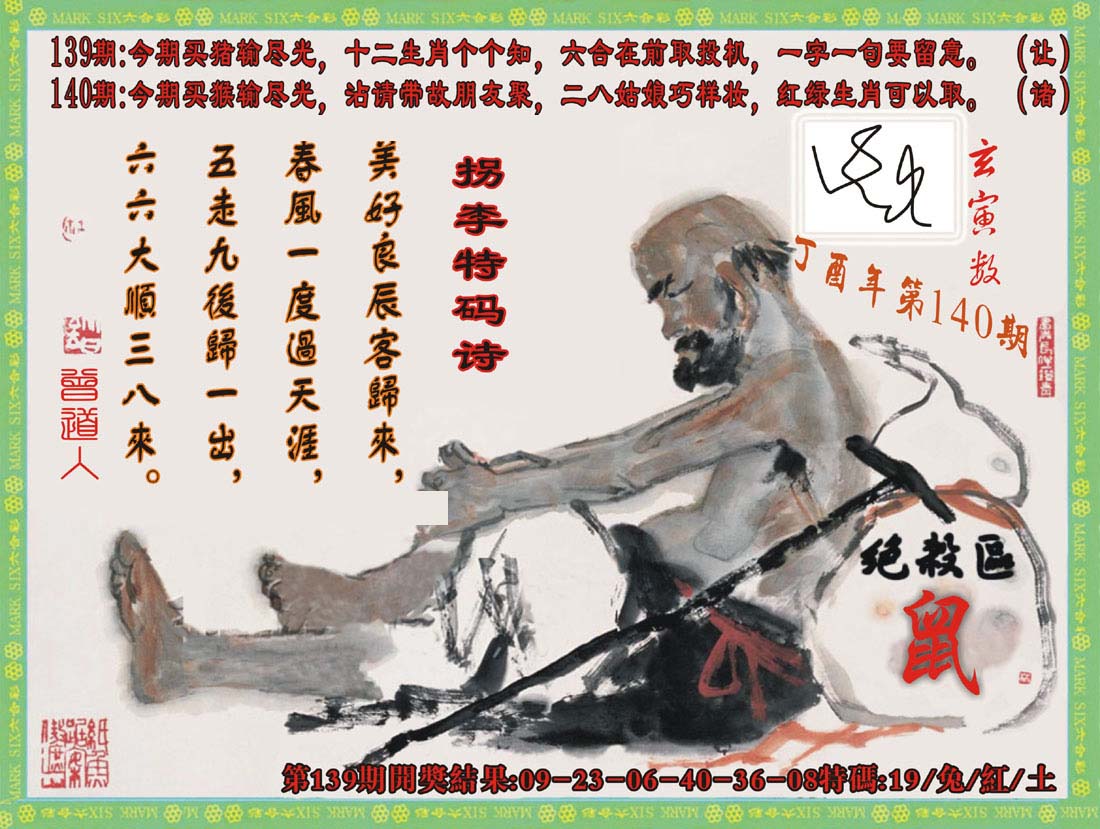 MARK SIX六合彩
139期:今期买猪输尽光，十二生肖个个知，六合在前取投机，一字一句要留意。 (让)
140期:今期买猴输尽光，沾请带故朋友聚，二八姑娘巧样妆，红绿生肖可以取。 (诸)
玄寅数
丁酉年第140期
拐李特码诗
美好良辰客歸來，
春風一度過天涯，
五走九後歸一出，
六六大順三八來。
曾道人
绝殺區
鼠
第139期開獎結果:09-23-06-40-36-08特碼:19/兔/紅/土